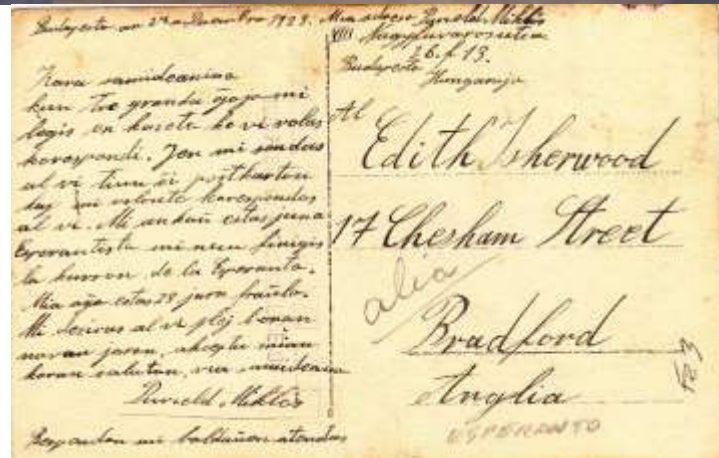 Budapesto on 27a Decembro 1928. Mia adreso Miklós
VIII Nagyfuvaros utca
26. f. 13.
Budapesto
Hungarujo
Kara samideanino
kun tre granda ĝojo mi
legis en ke vi volas
korespondi. Jen mi sendas
al vi tiun ĉi postkarton
kaj mi volonte korespondas
al vi. Mi ankaŭ estas juna
Esperantisto mi nun finigis
la kurson de la Esperanto.
Mia aĝo estas 28 jara fraŭlo.
Mi deziras al vi plej bonan
novan jaron, akceptu mian
koran saluton, via samideano
Miklós
Respondon mi baldaŭan atendas
Al
Edith Isherwood
17 Chesham Street
alia
Bradford
Anglia
ESPERANTO